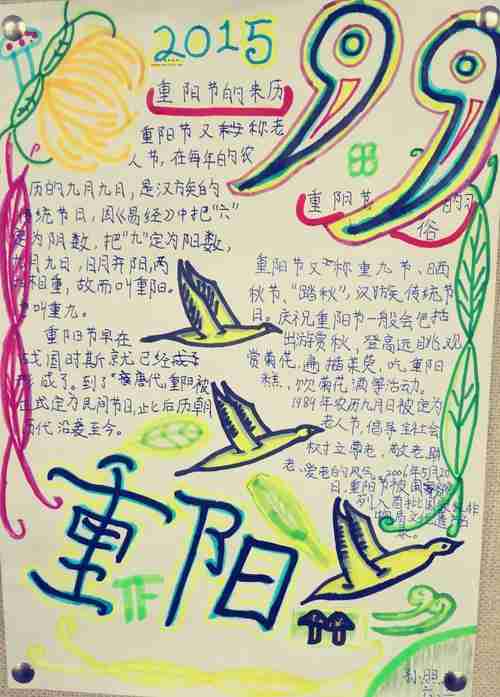 2015
重阳节的来历
重阳节又称老
人节，在每年的农
历的九月九日，是汉族的
传统节日，因《易经》中把“六”
定为阴数，把“九”定为阳数，
九月九日，日月并阳，两
相重，故而叫重阳。
叫重九。
重阳节早在
战国时斯京尤已经
形成了。到了唐代，重阳被
正式定为民间节日，止匕后历朝
历代沿袭至今。
重阳节
的
俗
重阳节又称重九节、晒
秋节、“踏秋”，汉族传统节
日。庆祝重阳节一般会包括
出游赏秋、登高远眺、观
赏菊花、遍插茱萸、吃重阳
糕、饮菊花酒等活动。
1989年农历九月日被定为
老人节，倡导全社会
树立尊老、敬老助
老、爱老的风气。2006年5月20
日，重阳节被国
列入首批国
重阳